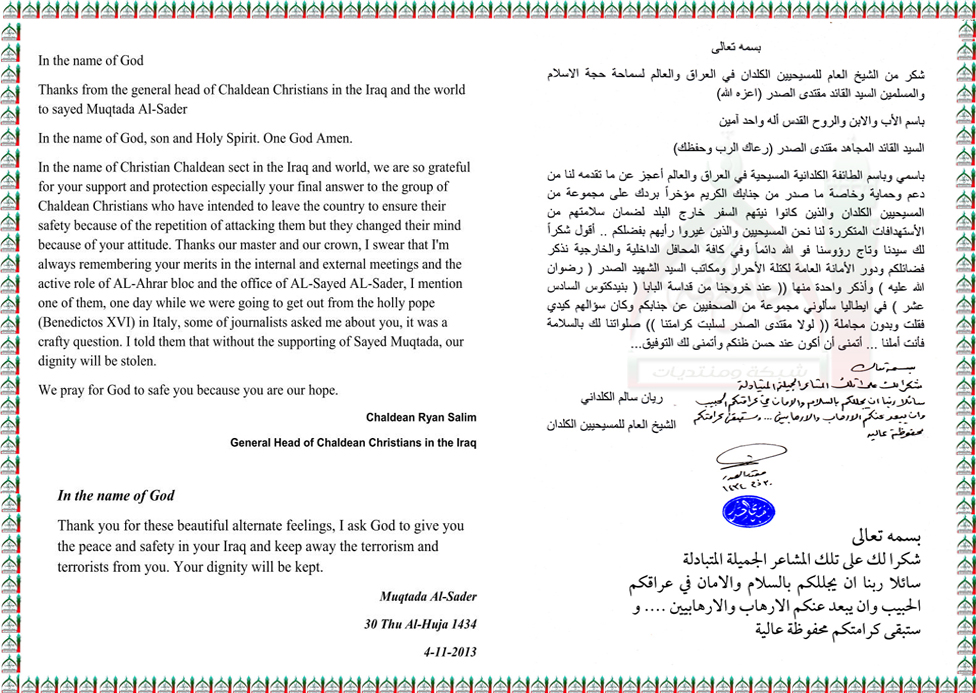 In the name of God
Thanks from the general head of Chaldean Christians in the Iraq and the world
to sayed Muqtada Al-Sader
In the name of God, son and Holy Spirit. One God Amen.
In the name of Christian Chaldean sect in the Iraq and world, we are so grateful
for your support and protection especially your final answer to the group of
Chaldean Christians who have intended to leave the country to ensure their
safety because of the repetition of attacking them but they changed their mind
because of your attitude. Thanks our master and our crown, I swear that I'm
always remembering your merits in the internal and external meetings and the
active role of AL-Ahrar bloc and the office of AL-Sayed AL-Sader, I mention
one of them, one day while we were going to get out from the holly pope
(Benedictos XVI) in Italy, some of journalists asked me about you, it was a
crafty question. I told them that without the supporting of Sayed Muqtada, our
dignity will be stolen.
We pray for God to safe you because you are our hope.
Chaldean Ryan Salim
General Head of Chaldean Christians in the Iraq
In the name of God
Thank you for these beautiful alternate feelings, I ask God to give you
the peace and safety in your Iraq and keep away the terrorism and
terrorists from you. Your dignity will be kept.
Muqtada Al-Sader
30 Thu Al-Huja 1434
4-11-2013
بسمه تعالى
شكر من الشيخ العام للمسيحيين الكلدان في العراق والعالم لسماحة حجة الاسلام
والمسلمين السيد القائد مقتدى الصدر (اعزه الله)
باسم الأب والابن والروح القدس أله واحد آمين
السيد القائد المجاهد مقتدى الصدر (رعاك الرب وحفظك)
باسمي وباسم الطائفة الكلدانية المسيحية في العراق والعالم أعجز عن ما تقدمه لنا من
دعم وحماية وخاصة ما صدر من جنابك الكريم مؤخراً بردك على مجموعة من
المسيحيين الكلدان والذين كانوا نيتهم السفر خارج البلد لضمان سلامتهم من
الأستهدافات المتكررة لنا نحن المسيحيين والذين غيروا رأيهم بفضلكم .. أقول شكراً
لك سيدنا وتاج رؤوسنا فو الله دائماً وفي كافة المحافل الداخلية والخارجية نذكر
فضائلكم ودور الأمانة العامة لكتلة الأحرار ومكاتب السيد الشهيد الصدر ( رضوان
الله عليه ) وأذكر واحدة منها (( عند خروجنا من قداسة البابا ( بنيدكتوس السادس
عشر ) في ايطاليا سألوني مجموعة من الصحفيين عن جنابكم وكان سؤالهم كيدي
فقلت وبدون مجاملة (( لولا مقتدى الصدر لسلبت كرامتنا )) صلواتنا لك بالسلامة
فأنت أملنا ... أتمنى أن أكون عند حسن ظنكم وأتمنى لك التوفيق...
شبكة ومنتديات
ريان سالم الكلداني
الشيخ العام للمسيحيين الكلدان
بسمه تعالى
شكرا لك على تلك المشاعر الجميلة المتبادلة
سائلا ربنا ان يجللكم بالسلام والامان في عراقكم الحبيب
وان يبعد عنكم الارهاب والارهابيين ... وستبقى كرامتكم
محفوظة عالية
مقتدى الصدر
٣٠ ذ ح ١٤٣٤
بسمه تعالى
شكرا لك على تلك المشاعر الجميلة المتبادلة
سائلا ربنا ان يجللكم بالسلام والامان في عراقكم
الحبيب وان يبعد عنكم الارهاب والارهابيين .... و
ستبقى كرامتكم محفوظة عالية